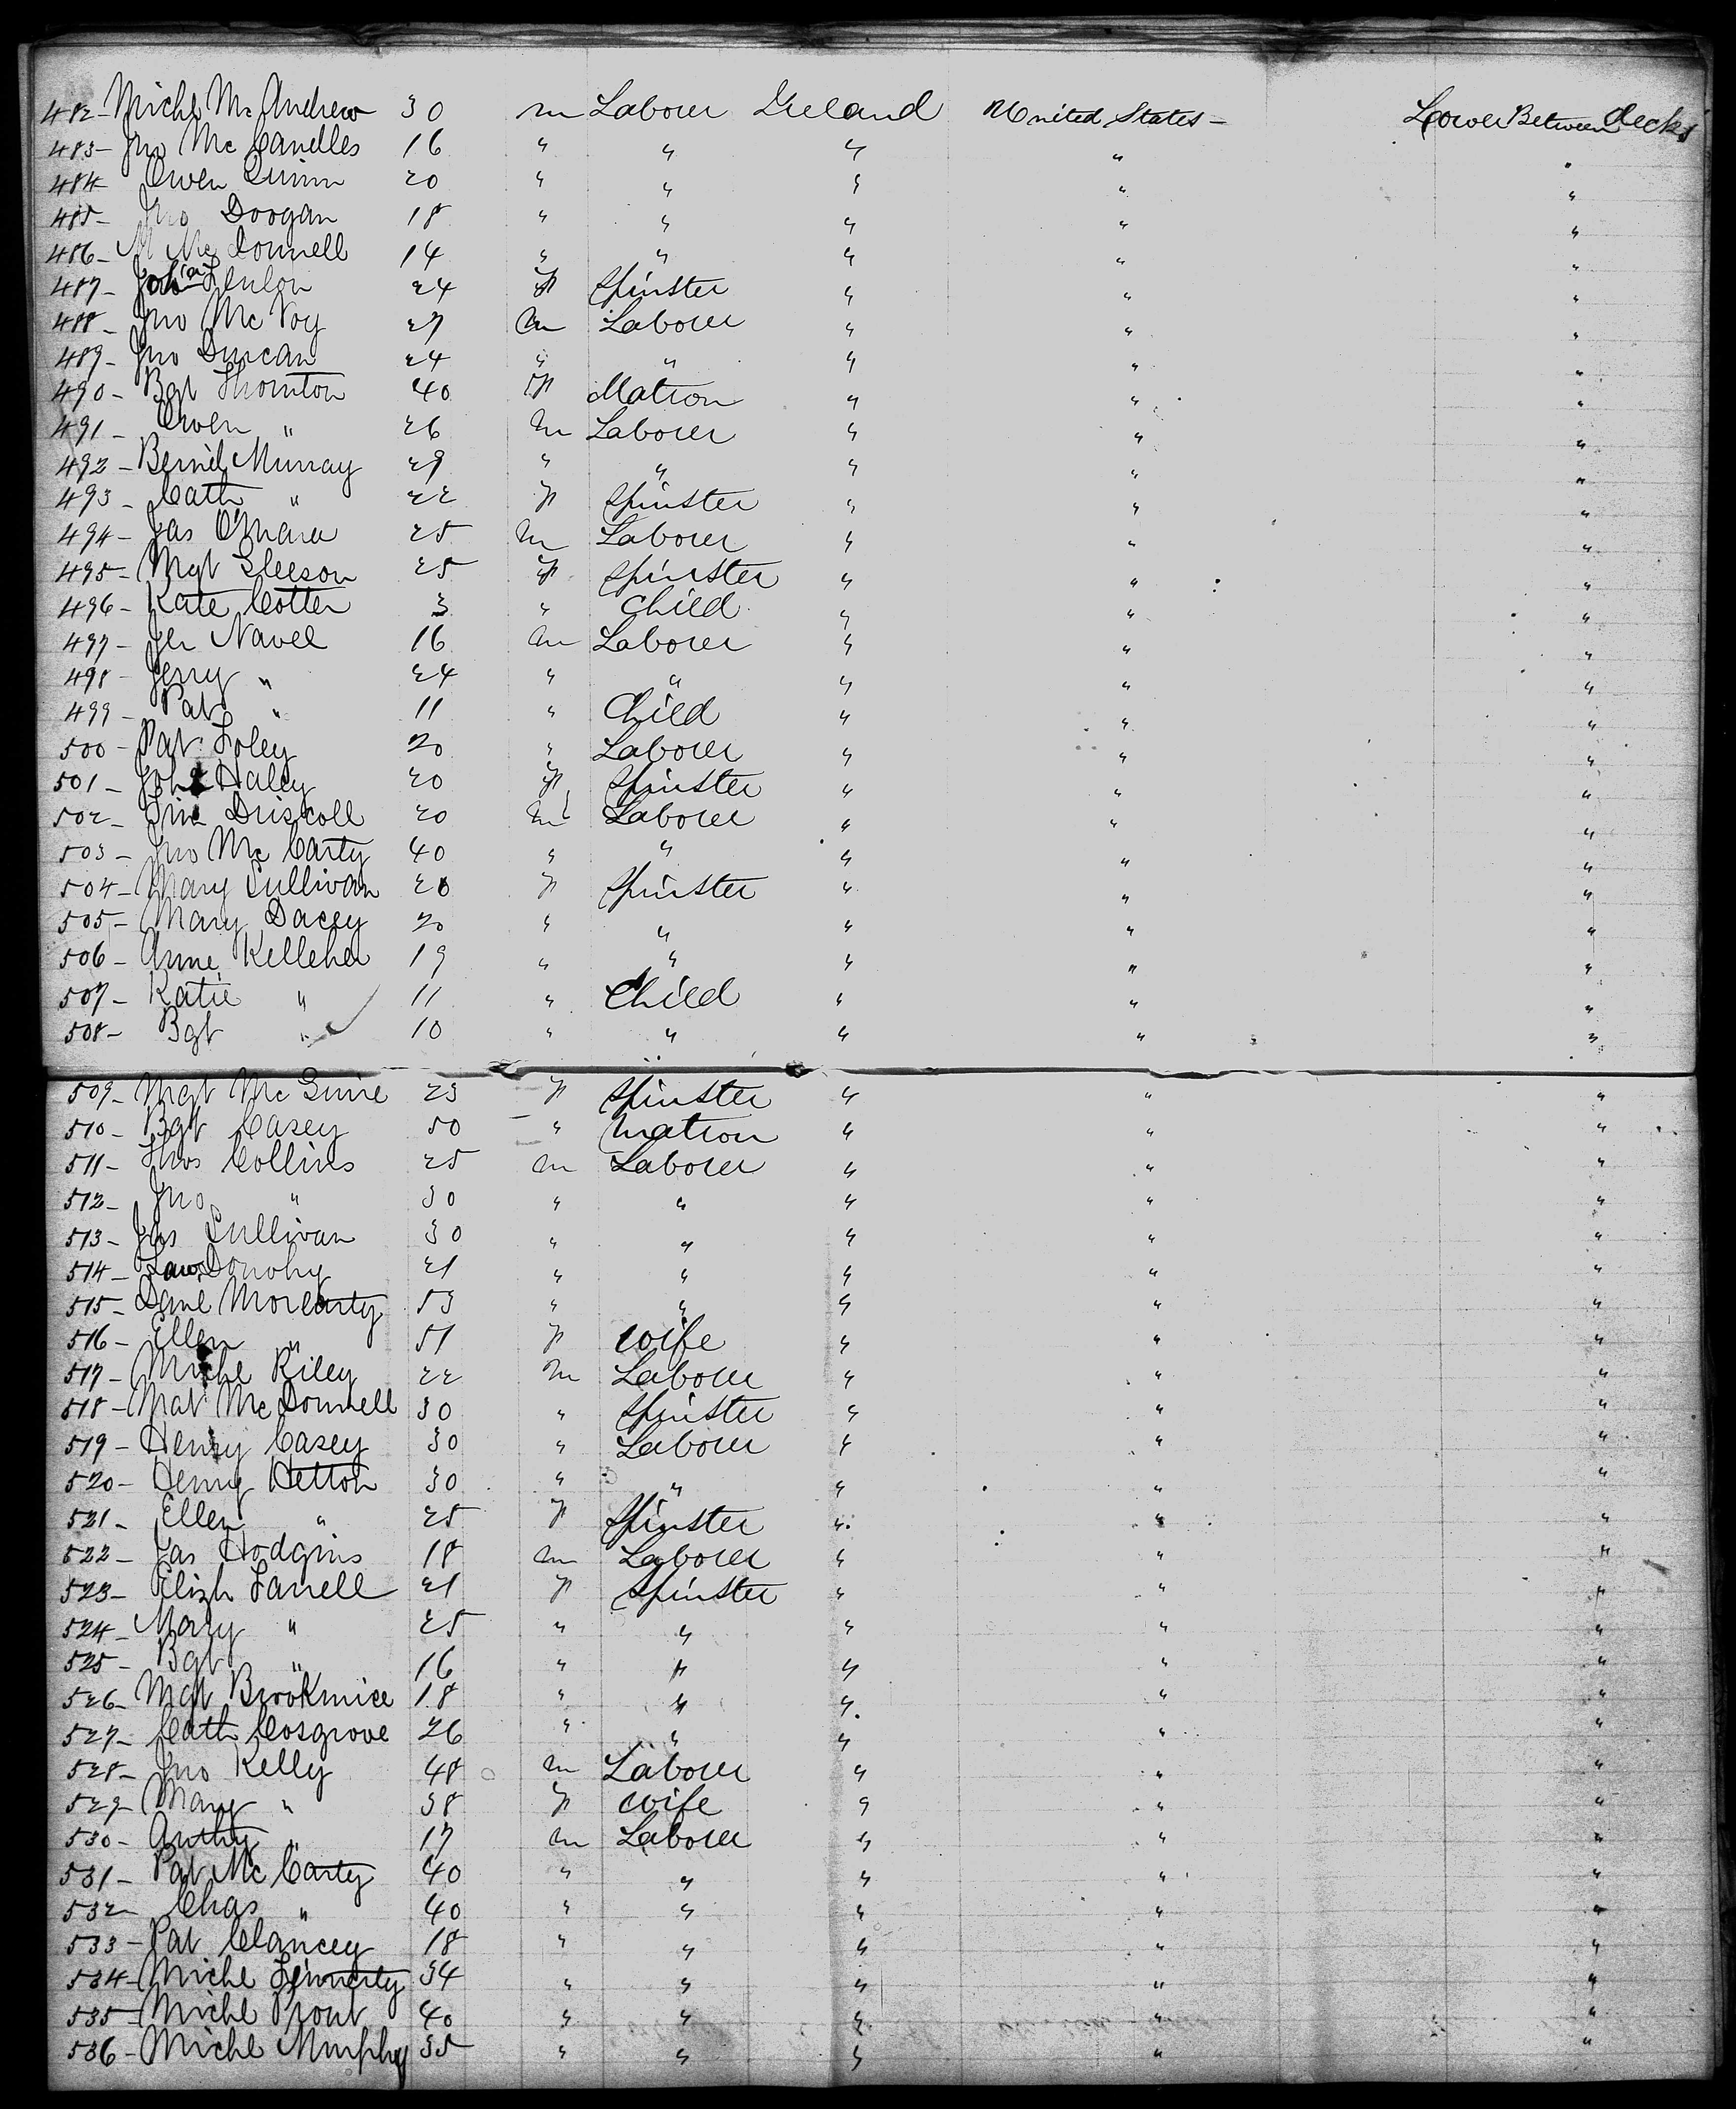 482- Michl McAndrew 30 m Laborer Ireland United States- Lower Between decks
483- Jno McCandles 16 " " " " "
484 Owen Quinn 20 " " " " "
485- Jno Doogan 18 " " " " "
486- M McDonnell 14 " " " " "
487- Joha 24 f Spinster " " "
488- Jno McVoy 27 m Laborer " " "
489- Jno Duncan 24 " " " " "
490- Bgt Thornton 40 f Matron " " "
491- Owen " 26 m Laborer " " "
492- Bernd Murray 29 " " " " "
493- Cath " 22 f Spinster " " "
494- Jas O'Mara 25 m Laborer " " "
495- Mgt Gleeson 25 f Spinster " " "
496- Kate Cotter 3 " Child " " "
497- Jer Navel 16 m Laborer " " "
498- Jerry " 24 " " " " "
499- Pat " 11 " Child " " "
500- Pat Foley 20 " Laborer " " "
501- Haley 20 f Spinster " " "
502- Driscoll 20 m Laborer " " "
503- Jno McCarty 40 " " " " "
504- Mary Sullivan 20 f Spinster " " "
505- Mary Dacey 20 " " " " "
506- Anne Kelleher 19 " " " " "
507- Katie " 11 " Child " " "
508- Bgt " 10 " " " " "
509- Mgt McGuire 23 f Spinster " " "
510- Bgt Casey 50 " Matron " " "
511- Thos Collins 25 m Laborer " " "
512- Jno " 30 " " " " "
513- Jas Sullivan 30 " " " " "
514- Law Donohy 21 " " " " "
515- Danl Morearty 53 " " " " "
516- Ellen " 51 f Wife " " "
517- Michl Riley 22 m Laborer " " "
518- Mat McDonnell 30 " Spinster " " "
519- Henry Casey 30 " Laborer " " "
520- Henry Hetton 30 " " " " "
521- Ellen " 25 f Spinster " " "
522- Jas Hodgins 18 m Laborer " " "
523- Elizh Farrell 21 f Spinster " " "
524- Mary " 25 " " " " "
525- Bgt " 16 " " " " "
526- Mgt Brokmice 18 " " " " "
527- Cath Cosgrove 26 " " " " "
528- Jno Kelly 48 m Laborer " " "
529- Mary " 38 f Wife " " "
530- Anthy " 17 m Laborer " " "
531- Pat McCarty 40 " " " " "
532- Chas " 40 " " " " "
533- Pat Clancey 18 " " " " "
534- Michl 34 " " " " "
535- Michl Prout 40 " " " " "
536- Michl Murphy 35 " " " " "